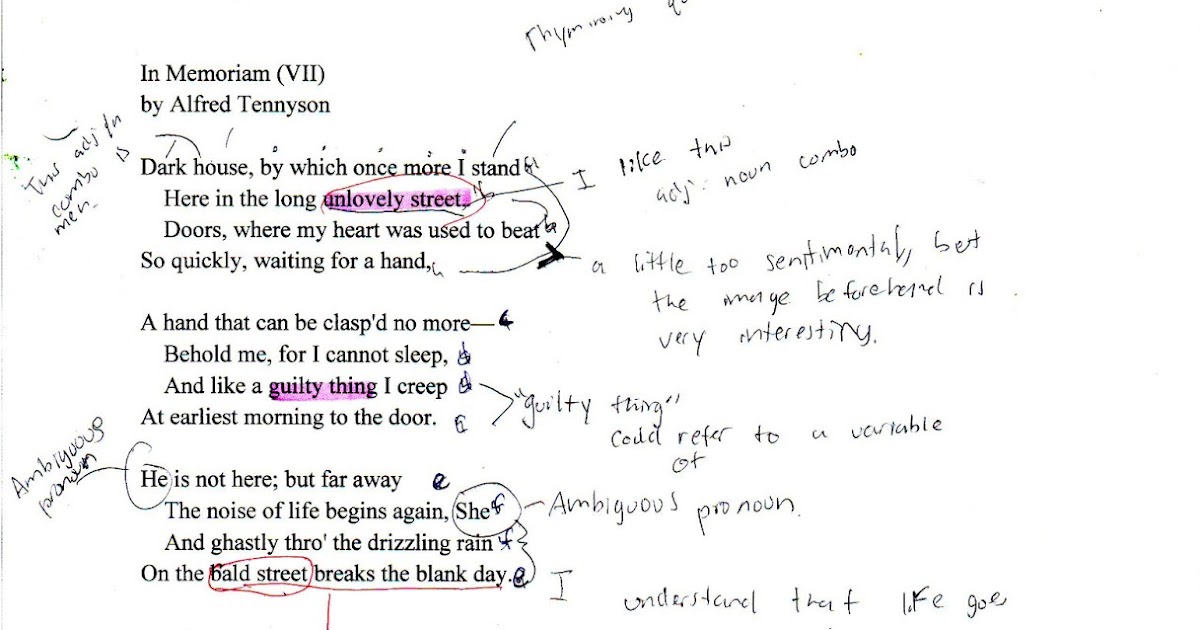 Rhyming
In Memoriam (VII)
by Alfred Tennyson
This adj/n
combo is
meh.
Dark house, by which once more I stand
Here in the long unlovely street,
Doors, where my heart was used to beat
So quickly, waiting for a hand,
I like this
adj. noun combo
a little too sentimental, but
the image beforehand is
very interesting.
A hand that can be clasp'd no more—
Behold me, for I cannot sleep,
And like a guilty thing I creep
At earliest morning to the door.
"guilty thing"
could refer to a variable
of
Ambiguous
pronoun
He is not here; but far away e
The noise of life begins again, She f
And ghastly thro' the drizzling rain f
On the bald street breaks the blank day. e
Ambiguous pronoun.
I understand that life goes